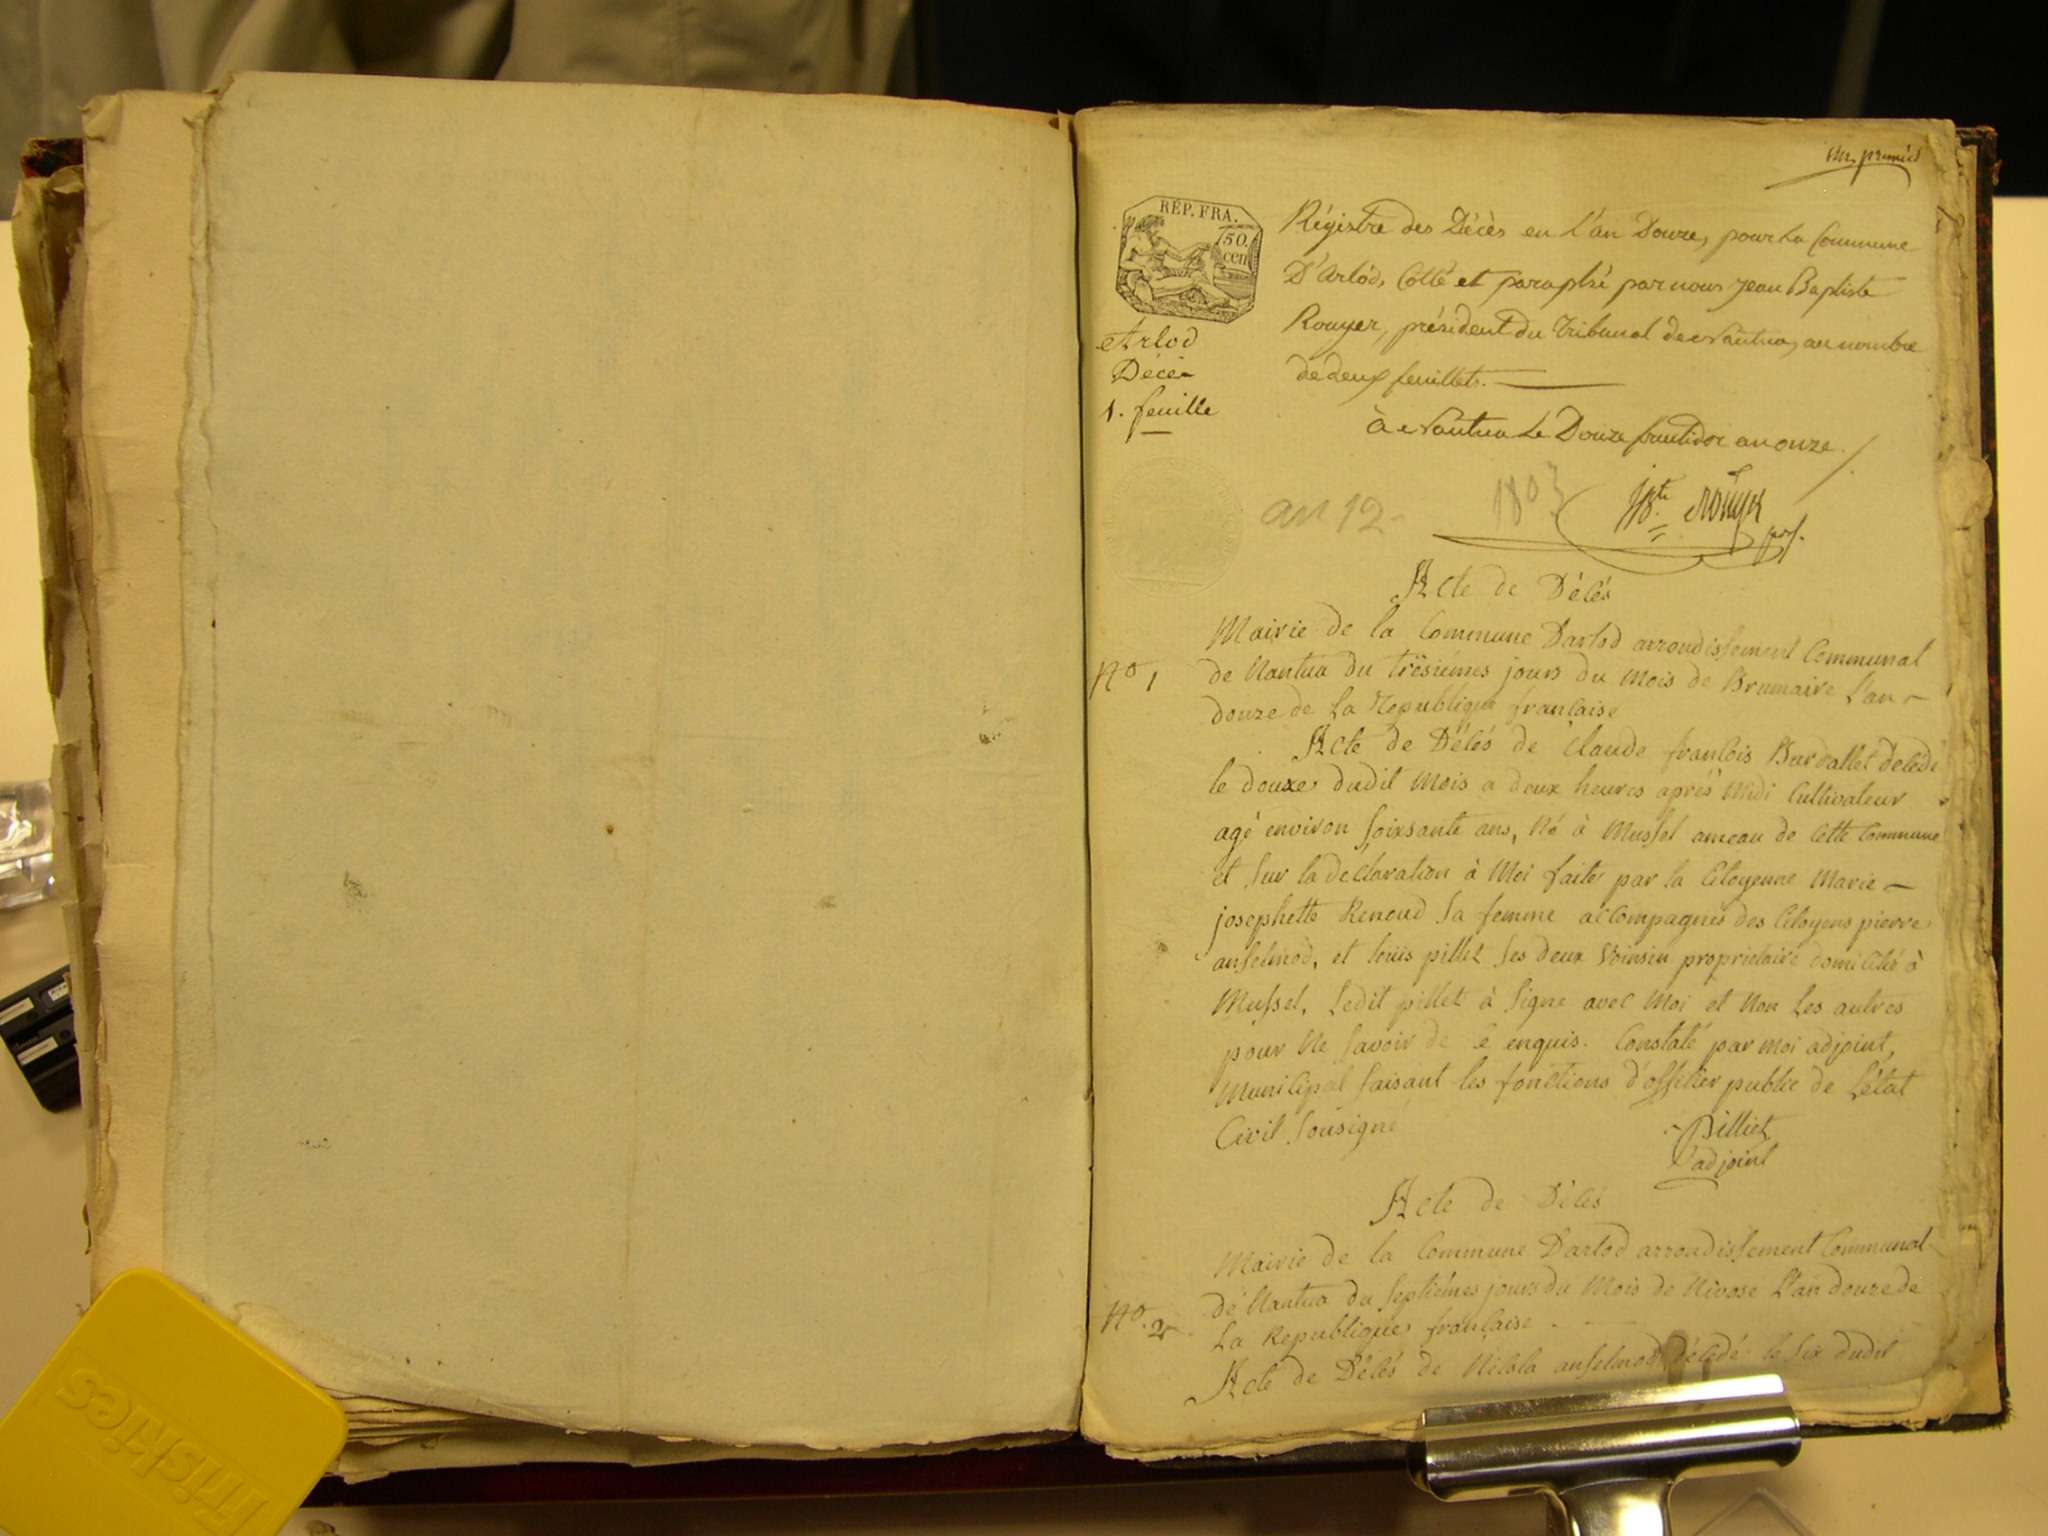 un premier
RÉP. FRA.
50.
cen
Régistre des Décès en L'an Douze, pour La Commune
D'Arlod, Collé et paraphé par nous Jean Baptiste
Rouyer, président du Tribunal de Nantua, au nombre
de deux feuillets.
Arlod
Décès
1. feuille
à Nantua Le Douze fructidor an onze.
an 12
1803
JBte Rouyer
prs.
Acte de Décés
Mairie de la Commune Darlod arrondissement Communal
No 1
de Nantua du trësiémes jours du mois de Brumaire L'an
douze de La Republique francaise
Acte de Décés de Claude francois Burdallet décédé
le douze dudit mois a deux heures aprés midi Cultivateur
agé environ soixsante ans, Né à Mussel ameau de cette Commune
et sur la déclaration à Moi faite par la Citoyenne Marie
josephette Renoud sa femme accompagnés des Citoyens pierre
anselmod, et louis pillet ses deux voinsin proprietaire domicilié à
Mussel, Ledit pillet à signe avec Moi et Non Les autres
pour Ne savoir de ce enquis. Constaté par moi adjoint,
Municipal faisant les fonctions d'officier public de L'état
Civil sousigné
Pilliet
L'adjoint
Acte de Décés
Mairie de la Commune Darlod arrondissement Communal
de Nantua du septiémes jours du Mois de Nivose L'an douze de
No. 2
La Republique francaise.
Acte de Décés de Nicola anselmod décédé le six dudit
friskies